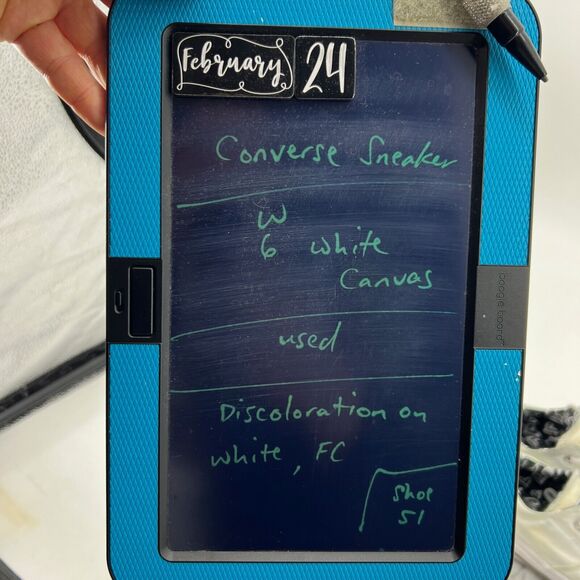 February 24
Converse Sneaker
W
6 white
Canvas
used
Discoloration on
white, FC
Shoe
51
boogie board